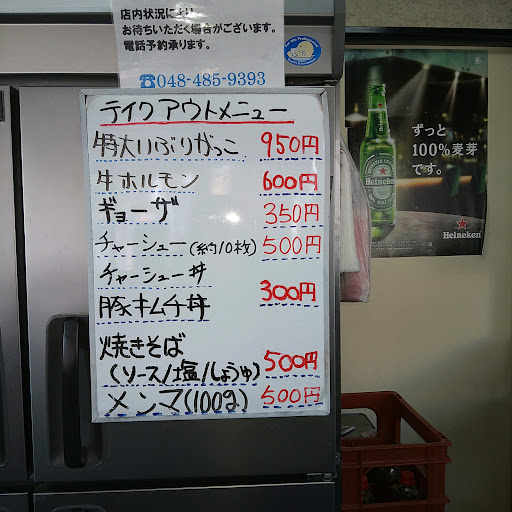 店内状況により
お待ちいただく場合がございます。
電話予約承ります。
☎048-485-9393
テイクアウトメニュー
特大いぶりがっこ 950円
牛ホルモン 600円
ギョーザ 350円
チャーシュー(約10枚) 500円
チャーシュー丼
豚キムチ丼 300円
焼きそば
(ソース/塩/しょうゆ) 500円
メンマ(100g) 500円
ずっと
100%麦芽
です。
Heineken
Heineken